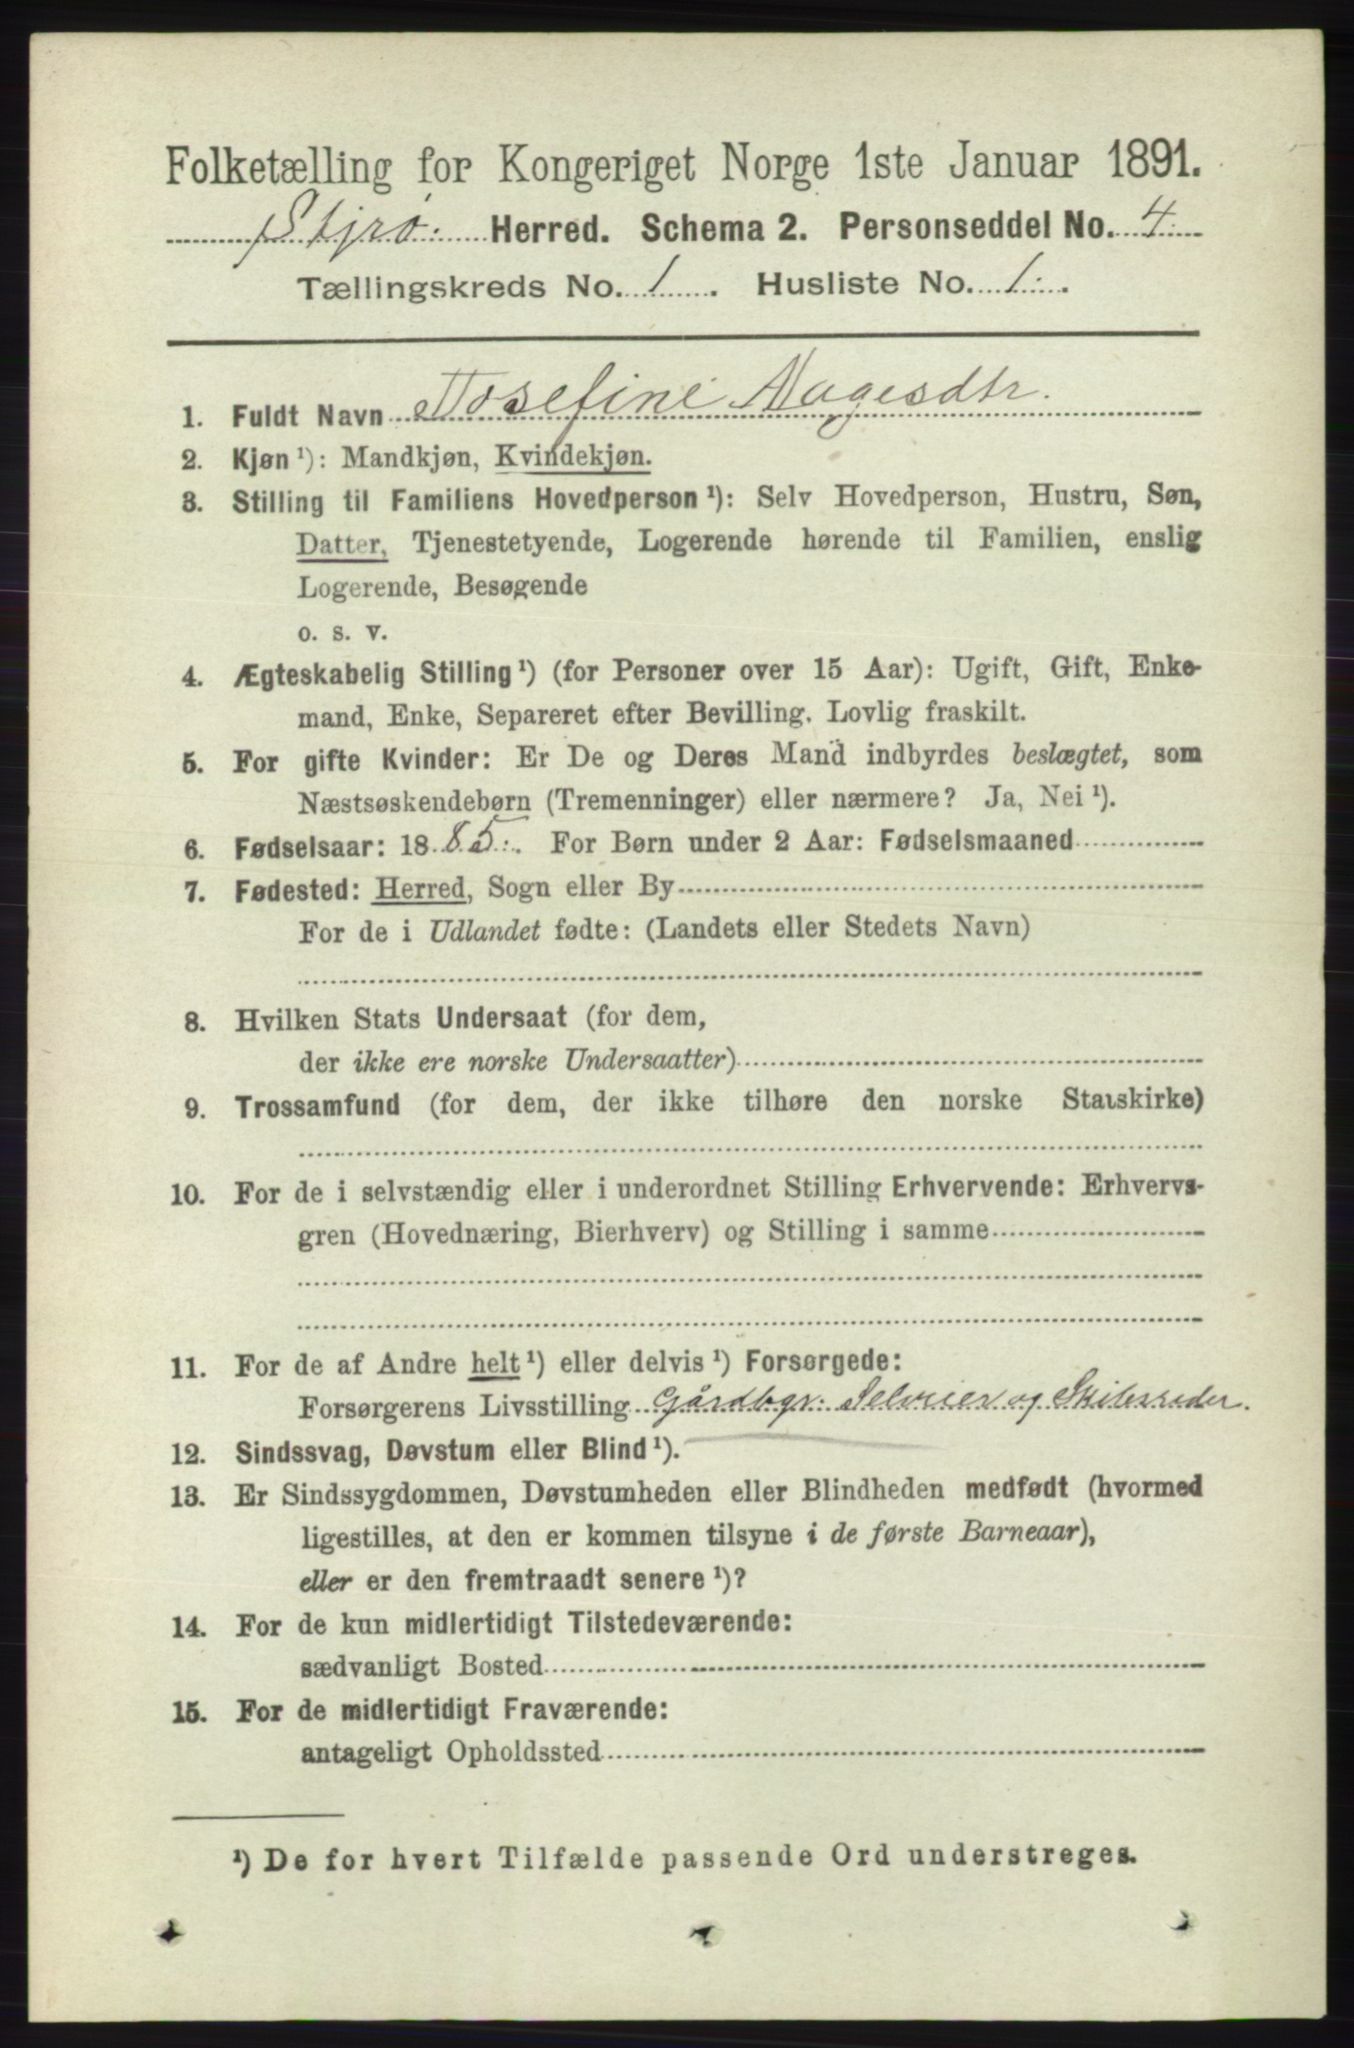 Folketælling for Kongeriget Norge 1ste Januar 1891.
Stjrø. Herred. Schema 2. Personseddel No. 4
Tællingskreds No. 1. Husliste No. 1.
1. Fuldt Navn Josefine Aagesdtr.
2. Kjøn ¹): Mandkjøn, Kvindekjøn.
3. Stilling til Familiens Hovedperson ¹): Selv Hovedperson, Hustru, Søn,
Datter, Tjenestetyende, Logerende hørende til Familien, enslig
Logerende, Besøgende
o. s. v.
4. Ægteskabelig Stilling ¹) (for Personer over 15 Aar): Ugift, Gift, Enke-
mand, Enke, Separeret efter Bevilling. Lovlig fraskilt.
5. For gifte Kvinder: Er De og Deres Mand indbyrdes beslægtet, som
Næstsøskendebørn (Tremenninger) eller nærmere? Ja, Nei ¹).
6. Fødselsaar: 1885. For Børn under 2 Aar: Fødselsmaaned
7. Fødested: Herred, Sogn eller By
For de i Udlandet fødte: (Landets eller Stedets Navn)
8. Hvilken Stats Undersaat (for dem,
der ikke ere norske Undersaatter)
9. Trossamfund (for dem, der ikke tilhøre den norske Statskirke)
10. For de i selvstændig eller i underordnet Stilling Erhvervende: Erhvervs-
gren (Hovednæring, Bierhverv) og Stilling i samme
11. For de af Andre helt ¹) eller delvis ¹) Forsørgede:
Forsørgerens Livsstilling Gårdbgr. Selveier og Skibsreder.
12. Sindssvag, Døvstum eller Blind ¹).
13. Er Sindssygdommen, Døvstumheden eller Blindheden medfødt (hvormed
ligestilles, at den er kommen tilsyne i de første Barneaar),
eller er den fremtraadt senere ¹)?
14. For de kun midlertidigt Tilstedeværende:
sædvanligt Bosted
15. For de midlertidigt Fraværende:
antageligt Opholdssted
¹) De for hvert Tilfælde passende Ord understreges.